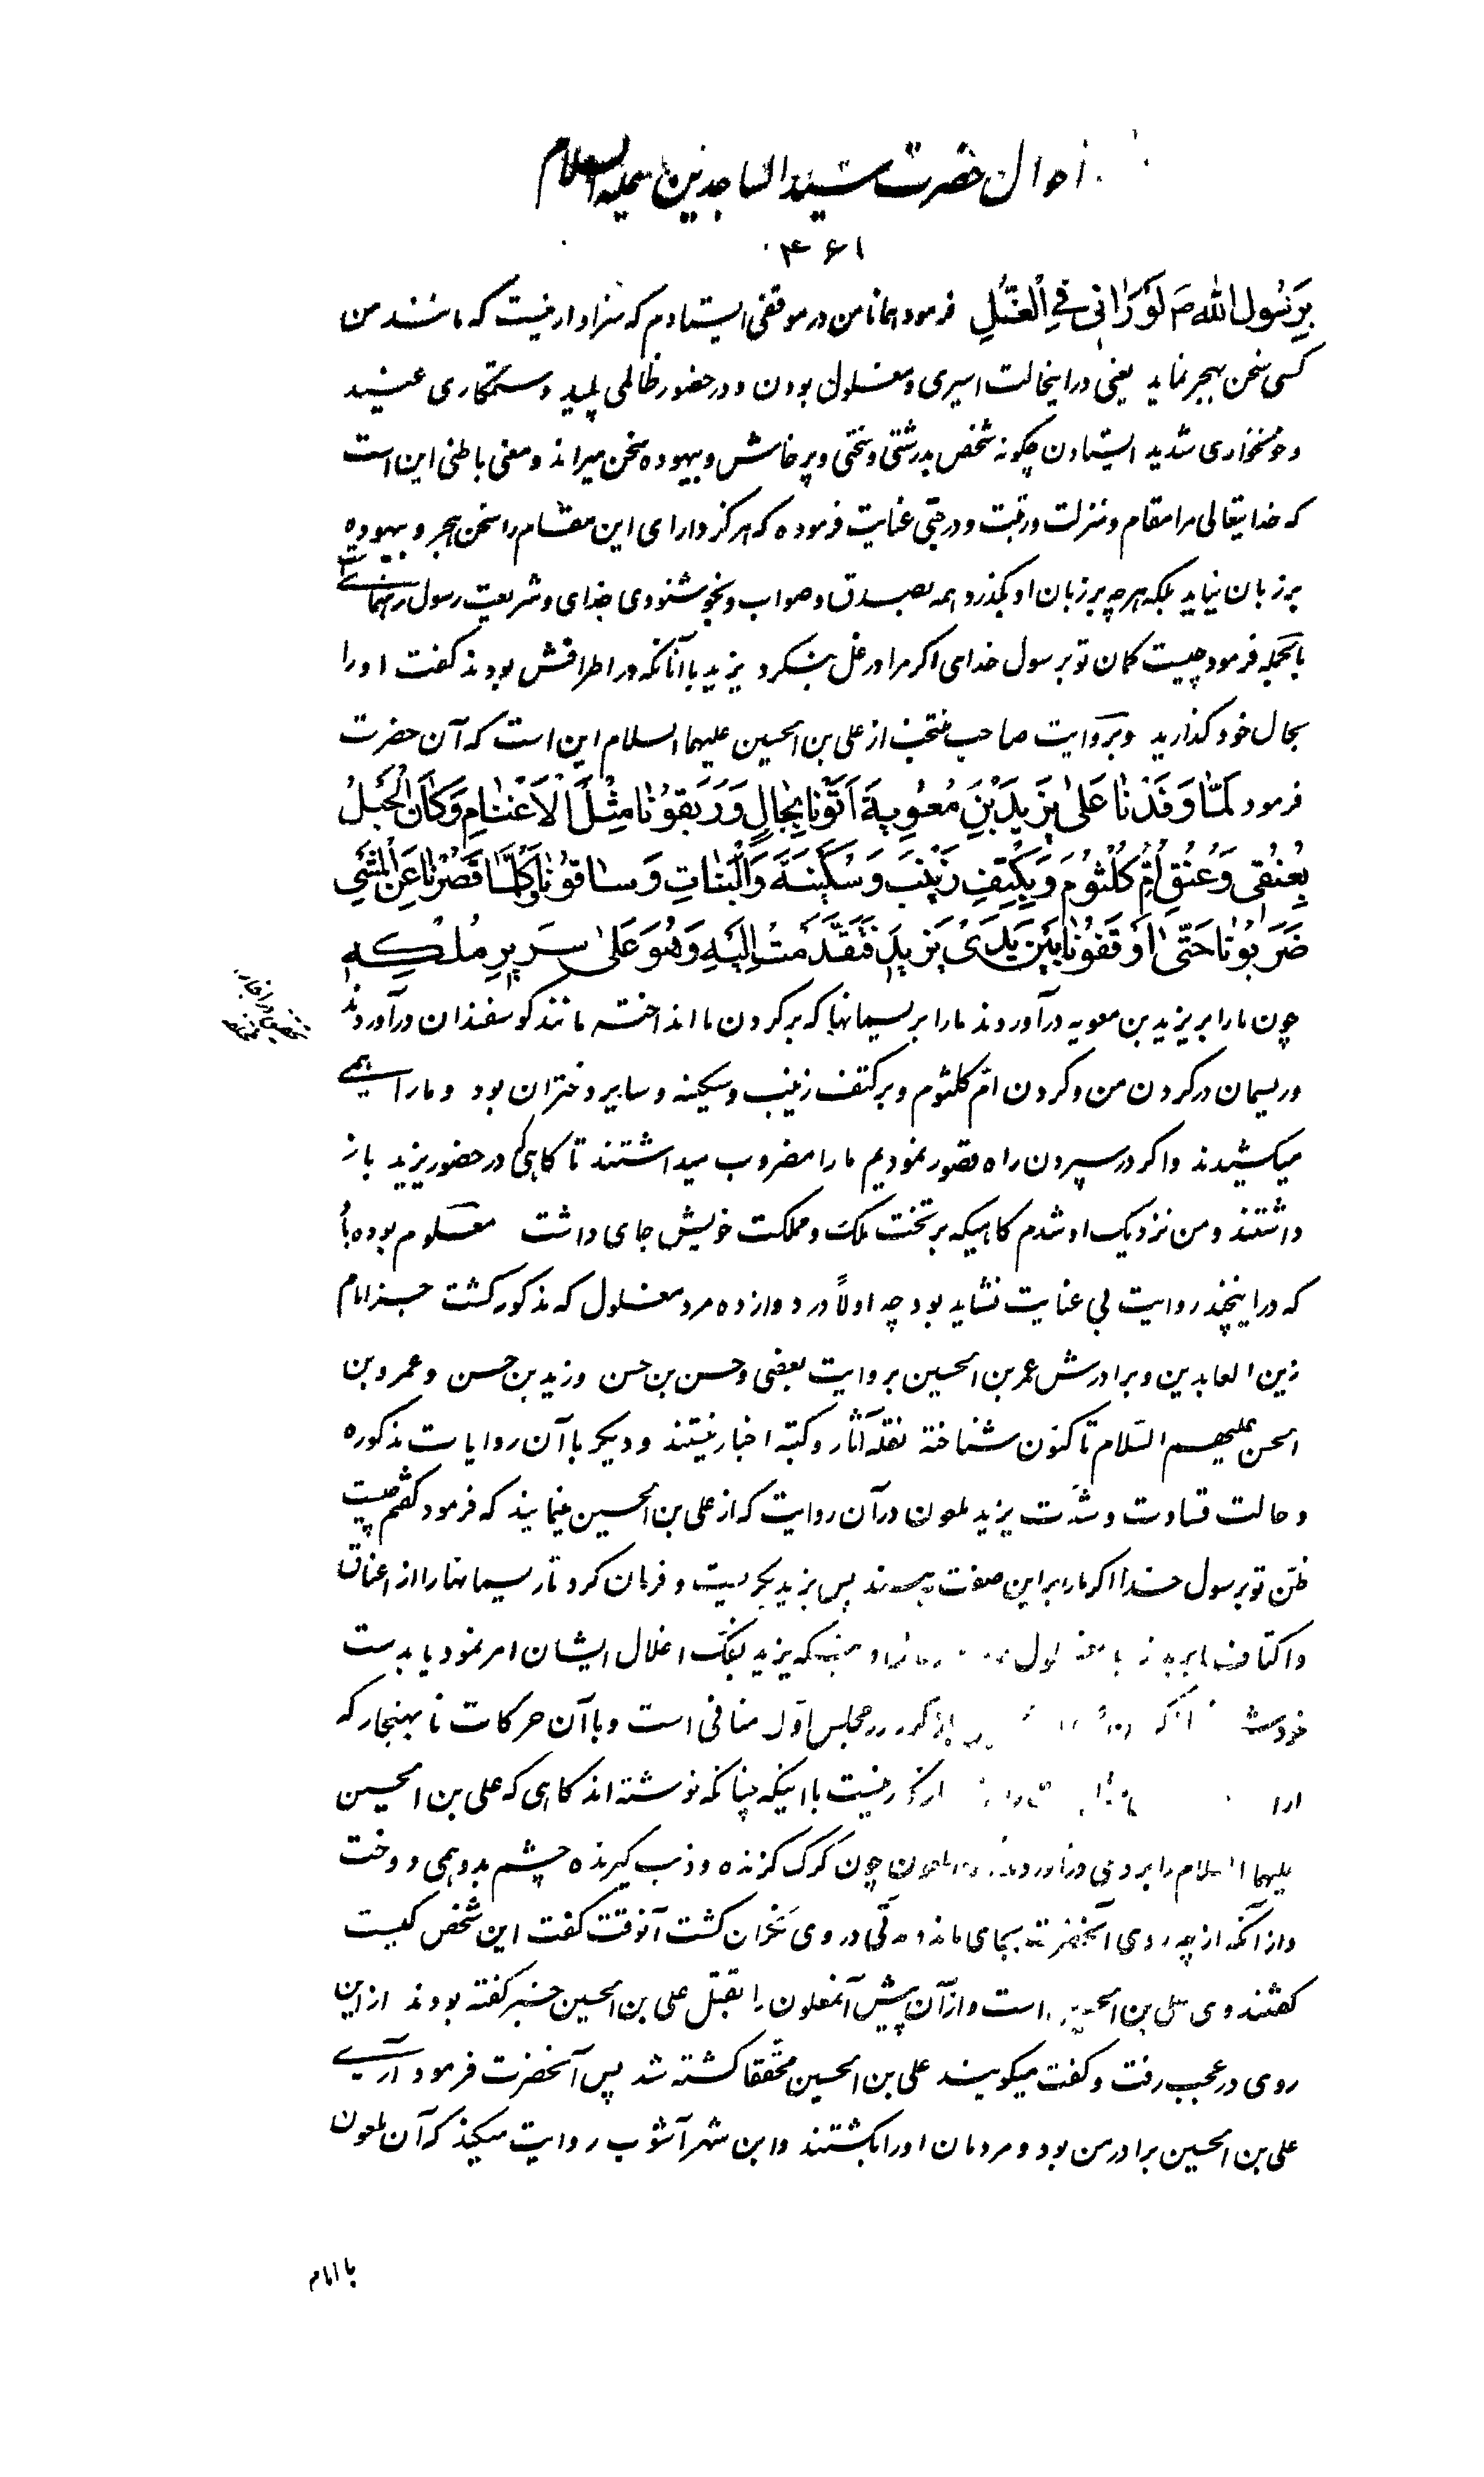 احوال حضرت سید الساجدین علیه السلام
۴۶۱
بِرَسُولِ اللهِ ص لَوْ رَاٰنی فِی الْغُلِّ فرمود همانا من در موقفی ایستادم که سزاوار نیست که مانند من
کسی سخن بهجر نماید یعنی در اینحالت اسیری و مغلول بودن و در حضور ظالمی پلید و ستمکاری عنید
و خونخواری شدید ایستادن چگونه شخص بدرشتی و سختی و پرخاش و بیهوده سخن میراند و معنی باطنی این است
که خدایتعالی مرا مقام و منزلت و رتبت و درجتی عنایت فرموده که هرگز دارای این مقام را سخن هجر و بیهوده
بر زبان نیاید بلکه هرچه بر زبان او بگذرد همه بصدق و صواب و بخوشنودی خدای و شریعت رسول رهنمای
بالجمله فرمود چیست کمان تو برسول خدای اکر مرا در غل بنکرد یزید با آنانکه در اطرافش بودند کفت او را
بحال خود کذارید و بروایت صاحب منتخب از علی بن الحسین علیهما السلام این است که آن حضرت
فرمود لَمّا وَفَدْنا عَلیٰ یَزیدَ بْنِ مُعٰوِیَةَ اَتَوْنا بِحِبالٍ وَرَبَقُونا مِثْلَ الْاَغْنامِ وَکانَ الْحَبْلُ
بِعُنُقی وَعُنُقِ اُمِّ کُلْثُومَ وَبِکِتْفِ زَیْنَبَ وَسُکَیْنَةَ وَالْبَناتِ وَساقُونا وَکُلَّما قَصُرْنا عَنِ الْمَشْیِ
ضَرَبُونا حَتّیٰ اَوْقَفُونا بَیْنَ یَدَیْ یَزیدَ فَتَقَدَّمْتُ اِلَیْهِ وَهُوَ عَلیٰ سَریرِ مُلْکِهِ
چون ما را بر یزید بن معویه درآوردند ما را بریسمانها که بر کردن ما انداخته مانند کوسفندان درآوردند
و ریسمان در کردن من و کردن امّ کلثوم و بر کتف زینب و سکینه و سایر دختران بود و ما را همی
میکشیدند و اکر در سپردن راه قصور نمودیم ما را مضروب میداشتند تا کاهی که در حضور یزید باز
داشتند و من نزدیک او شدم کاهیکه بر تخت ملک و مملکت خویش جای داشت معلوم بوده باد
که در اینچند روایت بی عنایت نشاید بود چه اولاً در دوازده مرد مغلول که مذکور کشت جز امام
زین العابدین و برادرش عمر بن الحسین بروایت بعضی و حسن بن حسن و زید بن حسن و عمرو بن
الحسن علیهم السّلام تا کنون شناخته نقله آثار و کتبه اخبار نیستند و دیکر با آن روایات مذکوره
و حالت قساوت و شدّت یزید ملعون در آن روایت که از علی بن الحسین مینمایند که فرمود کفتم چیست
ظنّ تو برسول خدا اکر ما را بر این صفت بیند پس یزید بکریست و فرمان کرد تا ریسمانها را از اعناق
و اکتاف ما ببریدند با یزید بفکّ اغلال ایشان امر نمود یا بدست
خود در مجلس اوّل منافی است و با آن حرکات نابهنجار که
نیست با اینکه چنانکه نوشته اند کاهی که علی بن الحسین
علیهما السلام را بروی درآوردند ملعون چون کرک کزنده و ذئب کیرنده چشم بدو همی دوخت
و از آنکه از چه روی آنحضرت بجای مانده در وی نکران کشت آنوقت کفت این شخص کیست
کفتند وی علی بن الحسین است و از آن پیش آنملعون را بقتل علی بن الحسین خبر کفته بودند از این
روی در عجب رفت و کفت میکویند علی بن الحسین محقّقا کشته شد پس آنحضرت فرمود آری
علی بن الحسین برادر من بود و مردمان او را بکشتند و ابن شهر آشوب روایت میکند که آن ملعون
با امام